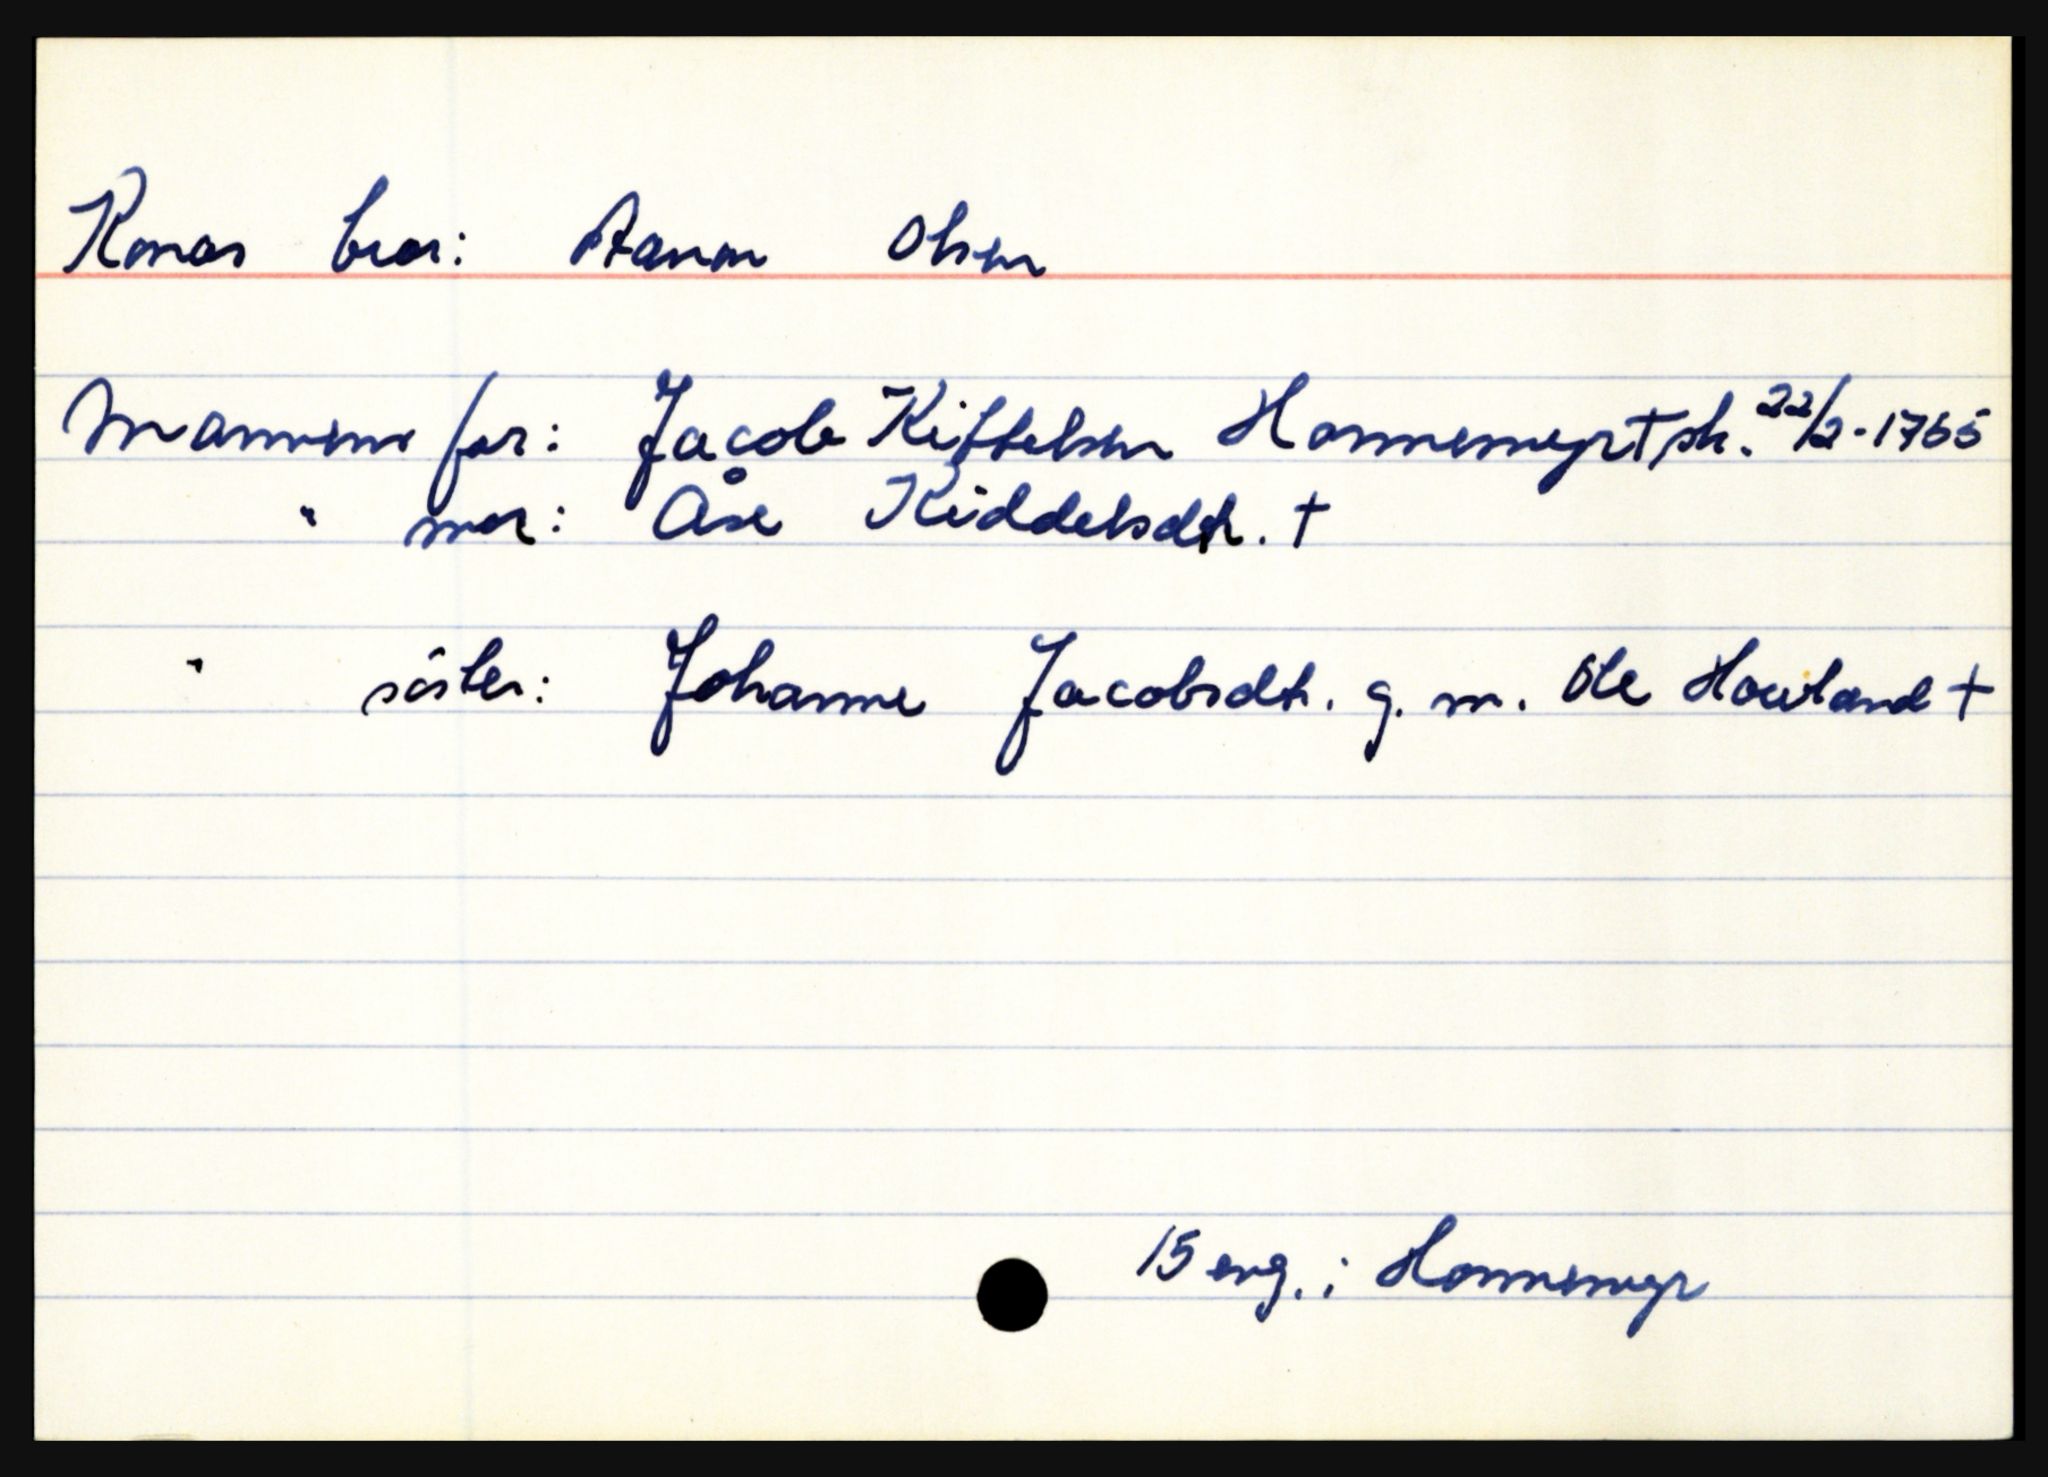 Konas bror: Aanon Olsen
Mannens far: Jacob Kittelsen Honnemyr † sk. 22/2-1765
" mor: Åse Kiddelsdtr. †
" söster: Johanne Jacobsdtr. g. m. Ole Hovland †
15 eng. i Honnemyr